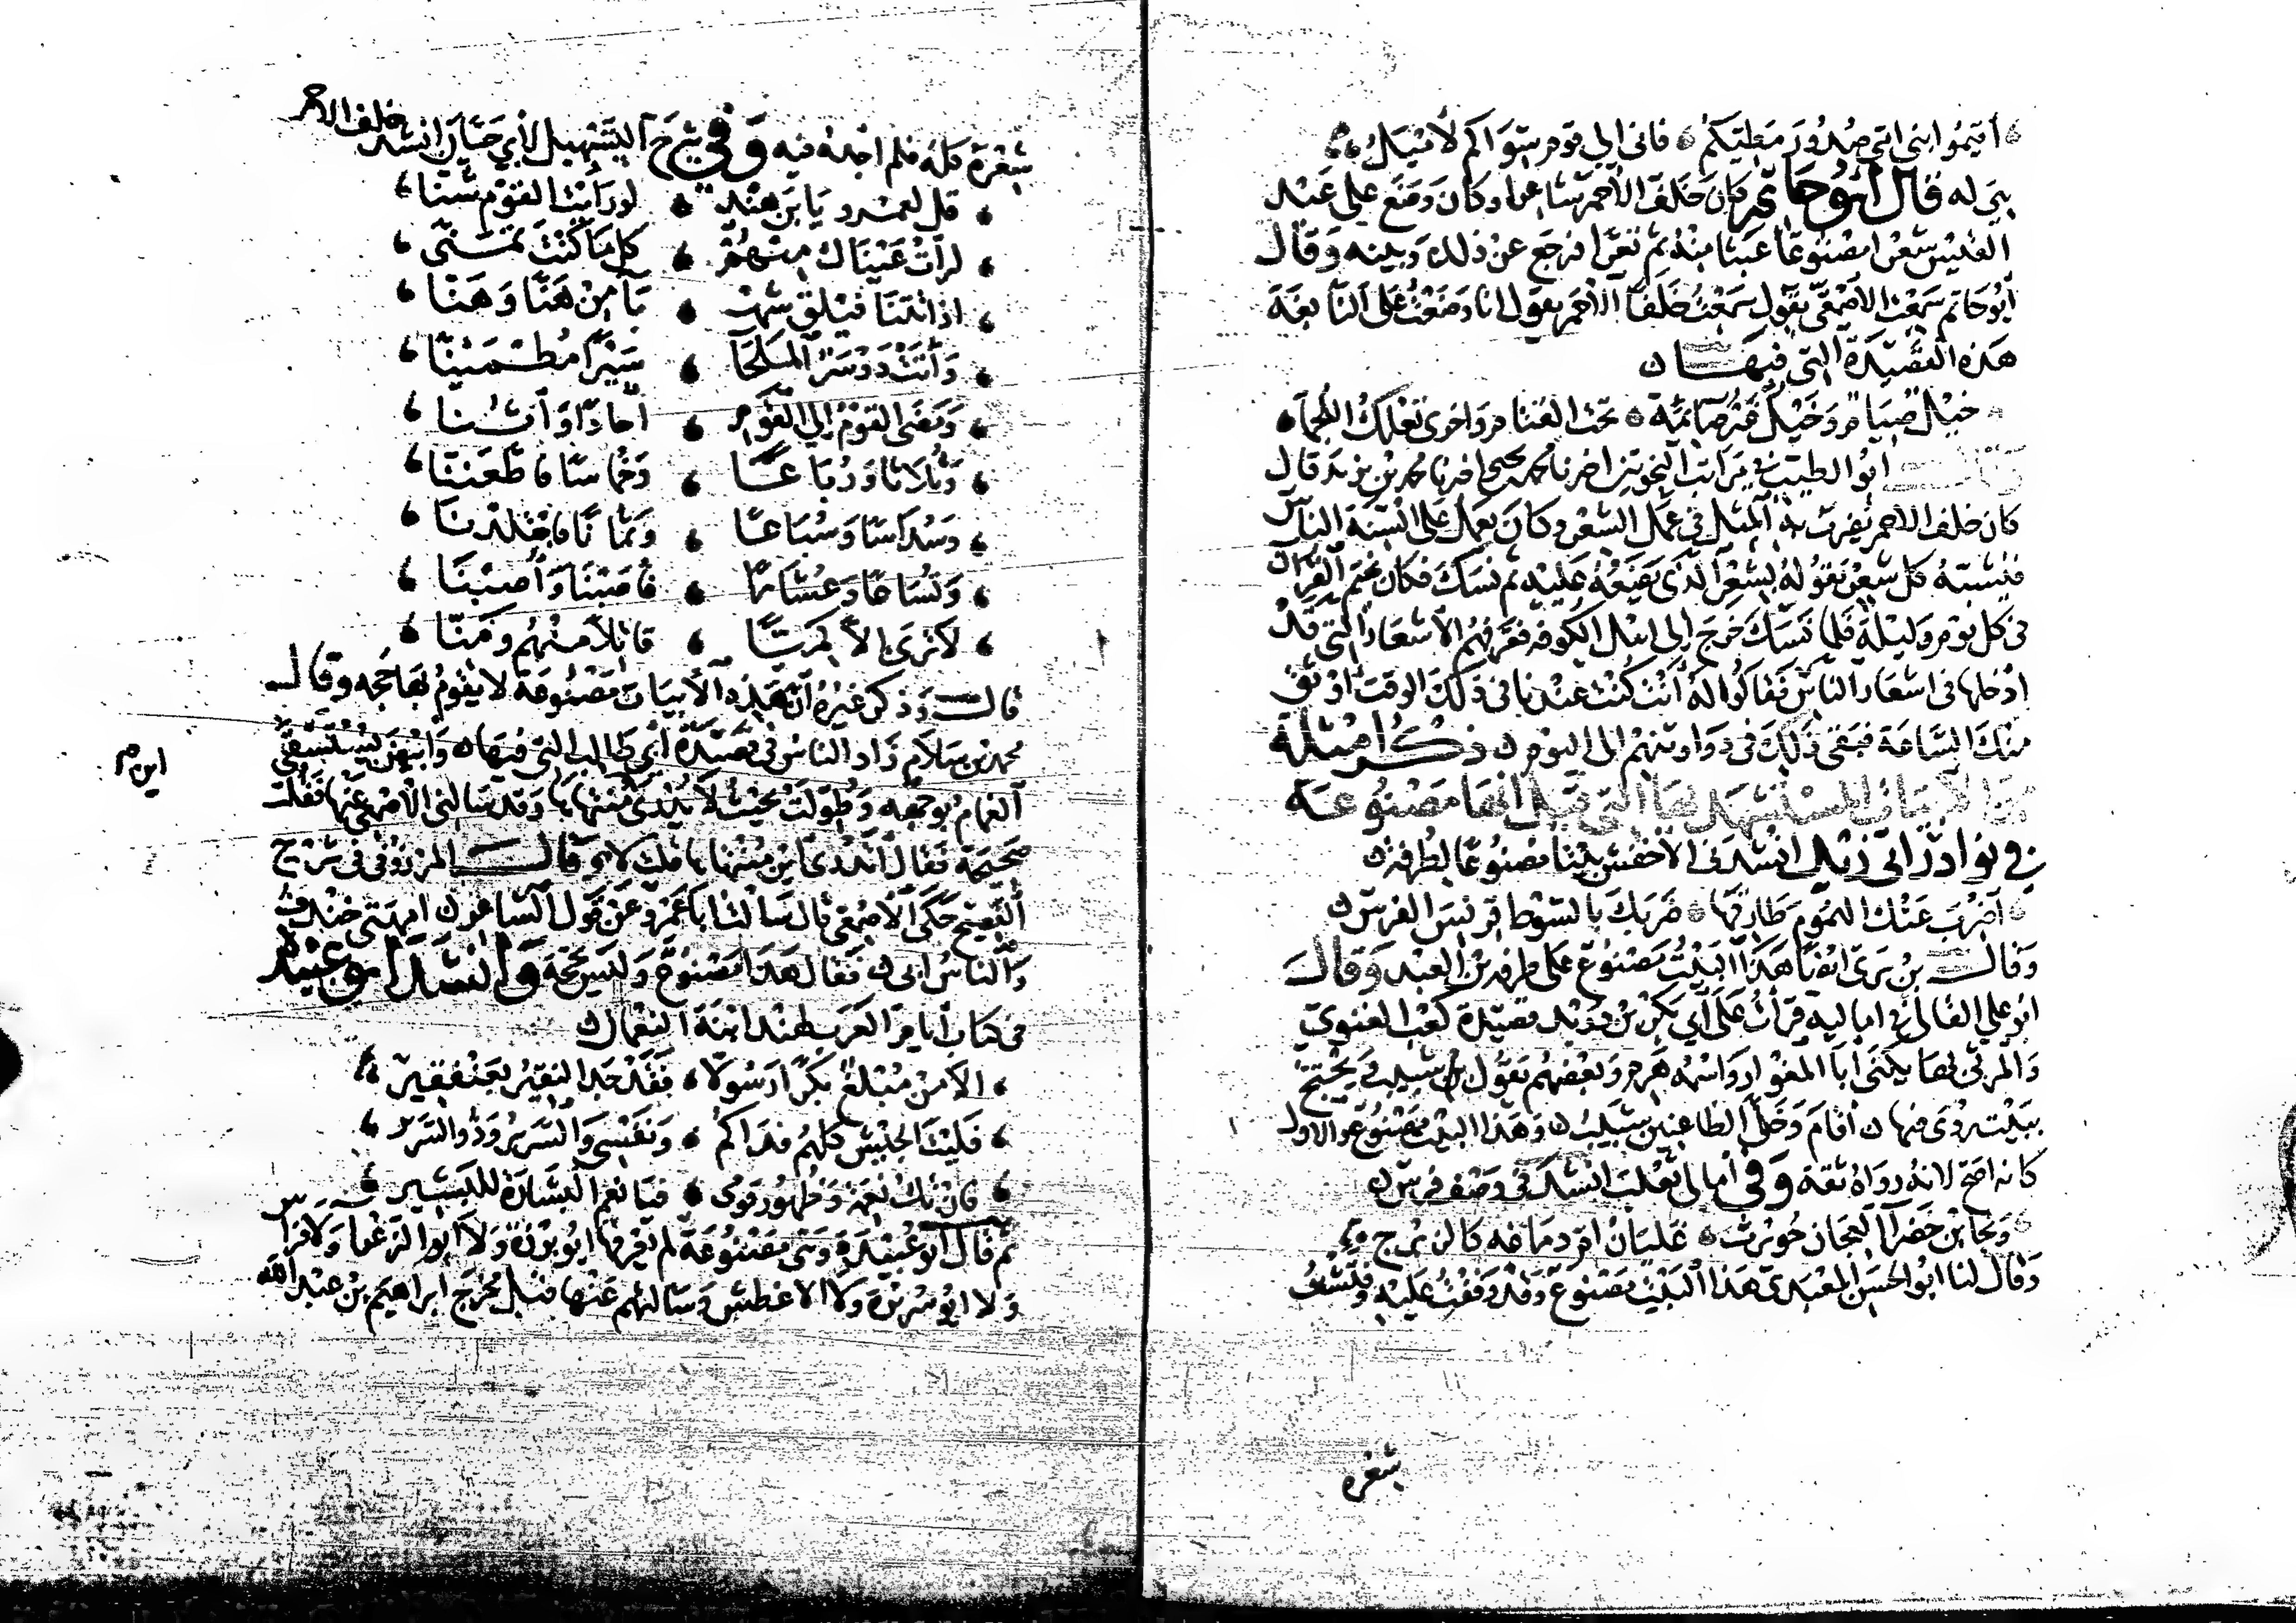 أقيموا ابني أمي صدور مطيكم فاني الي قوم سواكم لأميل
هي له قال أبو حاتم كان خلف الأحمر شاعرا وكان وضع علي عبد
القيس شعرا مصنوعا عبثا منه ثم تقرا فرجع عن ذلك وبينه وقال
أبو حاتم سمعت الأصمعي يقول سمعت خلفا الأحمر يقول انا وضعت على النابغة
هذه القصيدة التي فيها
خيل صيام وخيل غير صائمة تحت القتام واخرى تعلك اللجما
وقال ابو الطيب في مراتب النحويين اخبرنا محمد بن يحيى اخبرنا محمد بن يزيد قال
كان خلف الاحمر يضرب به المثل في عمل الشعر وكان يعمل على السنة الناس
فيشبه كل شعر يقوله بشعر الذي يضعه عليه ثم نسك فكان يختم القرآن
في كل يوم وليلة فلما نسك خرج إلى اهل الكوفه فعرفهم الاشعار التي قد
ادخلها في اشعار الناس فقالوا له أنت كنت عندنا في ذلك الوقت اوثق
منك الساعة فبقي ذلك في دواوينهم الى اليوم ذكر امثلة
من الابيات المستشهد بها التي قيل انها مصنوعة
في نوادر ابي زيد انشدني الأخفش بيتا مصنوعا لطرفة
اضرب عنك الهموم طارقها ضربك بالسوط قونس الفرس
وقال بن بري ايضا هذا البيت مصنوع على طرفه بن العبد وقال
ابو علي القالي في اماليه قرأت على أبي بكر بن دريد قصيدة كعب الغنوي
والمرثي بها يكنى أبا المغوار واسمه هرم وبعضهم يقول شبيب ويحتج
ببيت روى فيها أقام وخلى الظاعنين شبيب وهذا البيت مصنوع والاول
كانه اصح لانه رواه ثقة وفي أمالي ثعلب انشد في وصف فرس
ونجا بن خضرا العجان حويرث غليان ام دماغه كالزبرج
وقال لنا ابو الحسن المعبدي هذا البيت مصنوع وقد وقفت عليه وفتشت
شعره
شعره كله فلم اجده فيه وفي شرح التسهيل لأبي حيان انشد خلف الاحمر
قل لعمرو يا بن هند لو رأيت القوم شنا
لرأت عيناك منهم كل ما كنت تمنى
اذ اتتنا فيلق شهبا من هنا وهنا
وأتت دوسر الملحا سيرا مطمئنا
ومضى القوم إلى القوم أحاد وأثنا
وثلاثا ورباعا وخماسا فاطعنا
وسداسا وسباعا وثمانا فاجتلدنا
وتساعا وعشارا فاصبنا وأصبنا
لا ترى الا كميا قاتلا منهم ومنا
قال وذكر غيره أن هذه الأبيات مصنوعة لا يقوم بها حجه وقال
محمد بن سلام زاد الناس في قصيدة أبي طالب التي فيها وابيض يستسقى
ابن م
الغمام بوجهه وطولت بحيث لا يدرى منتهاها وقد سالني الأصمعي عنها فقلت
صحيحة فقال أتدري اين منتهاها قلت لا وقال المرزوقي في شرح
الفصيح حكى الأصمعي قال سالت أبا عمرو عن قول الشاعر امهتي خندف
والناس ابي فقال هذا مصنوع وليس بحجة وأنشد أبو عبيدة
في كتاب أيام العرب لهند ابنة النعمان
الا من مبلغ بكرا رسولا فقد جد النفير بعنقفير
فليت الجيش كلهم فداكم ونفسي والسرير وذو السرير
فان تك نعمة وظهور قومي فيا نعم البشارة للبشير
ثم قال أبو عبيدة وهي مصنوعة لم يعرفها ابو بردة ولا ابو الزعرا ولا فراس
ولا ابو سريرة ولا الاغطش وسالتهم عنها قبل مخرج ابراهيم بن عبد الله